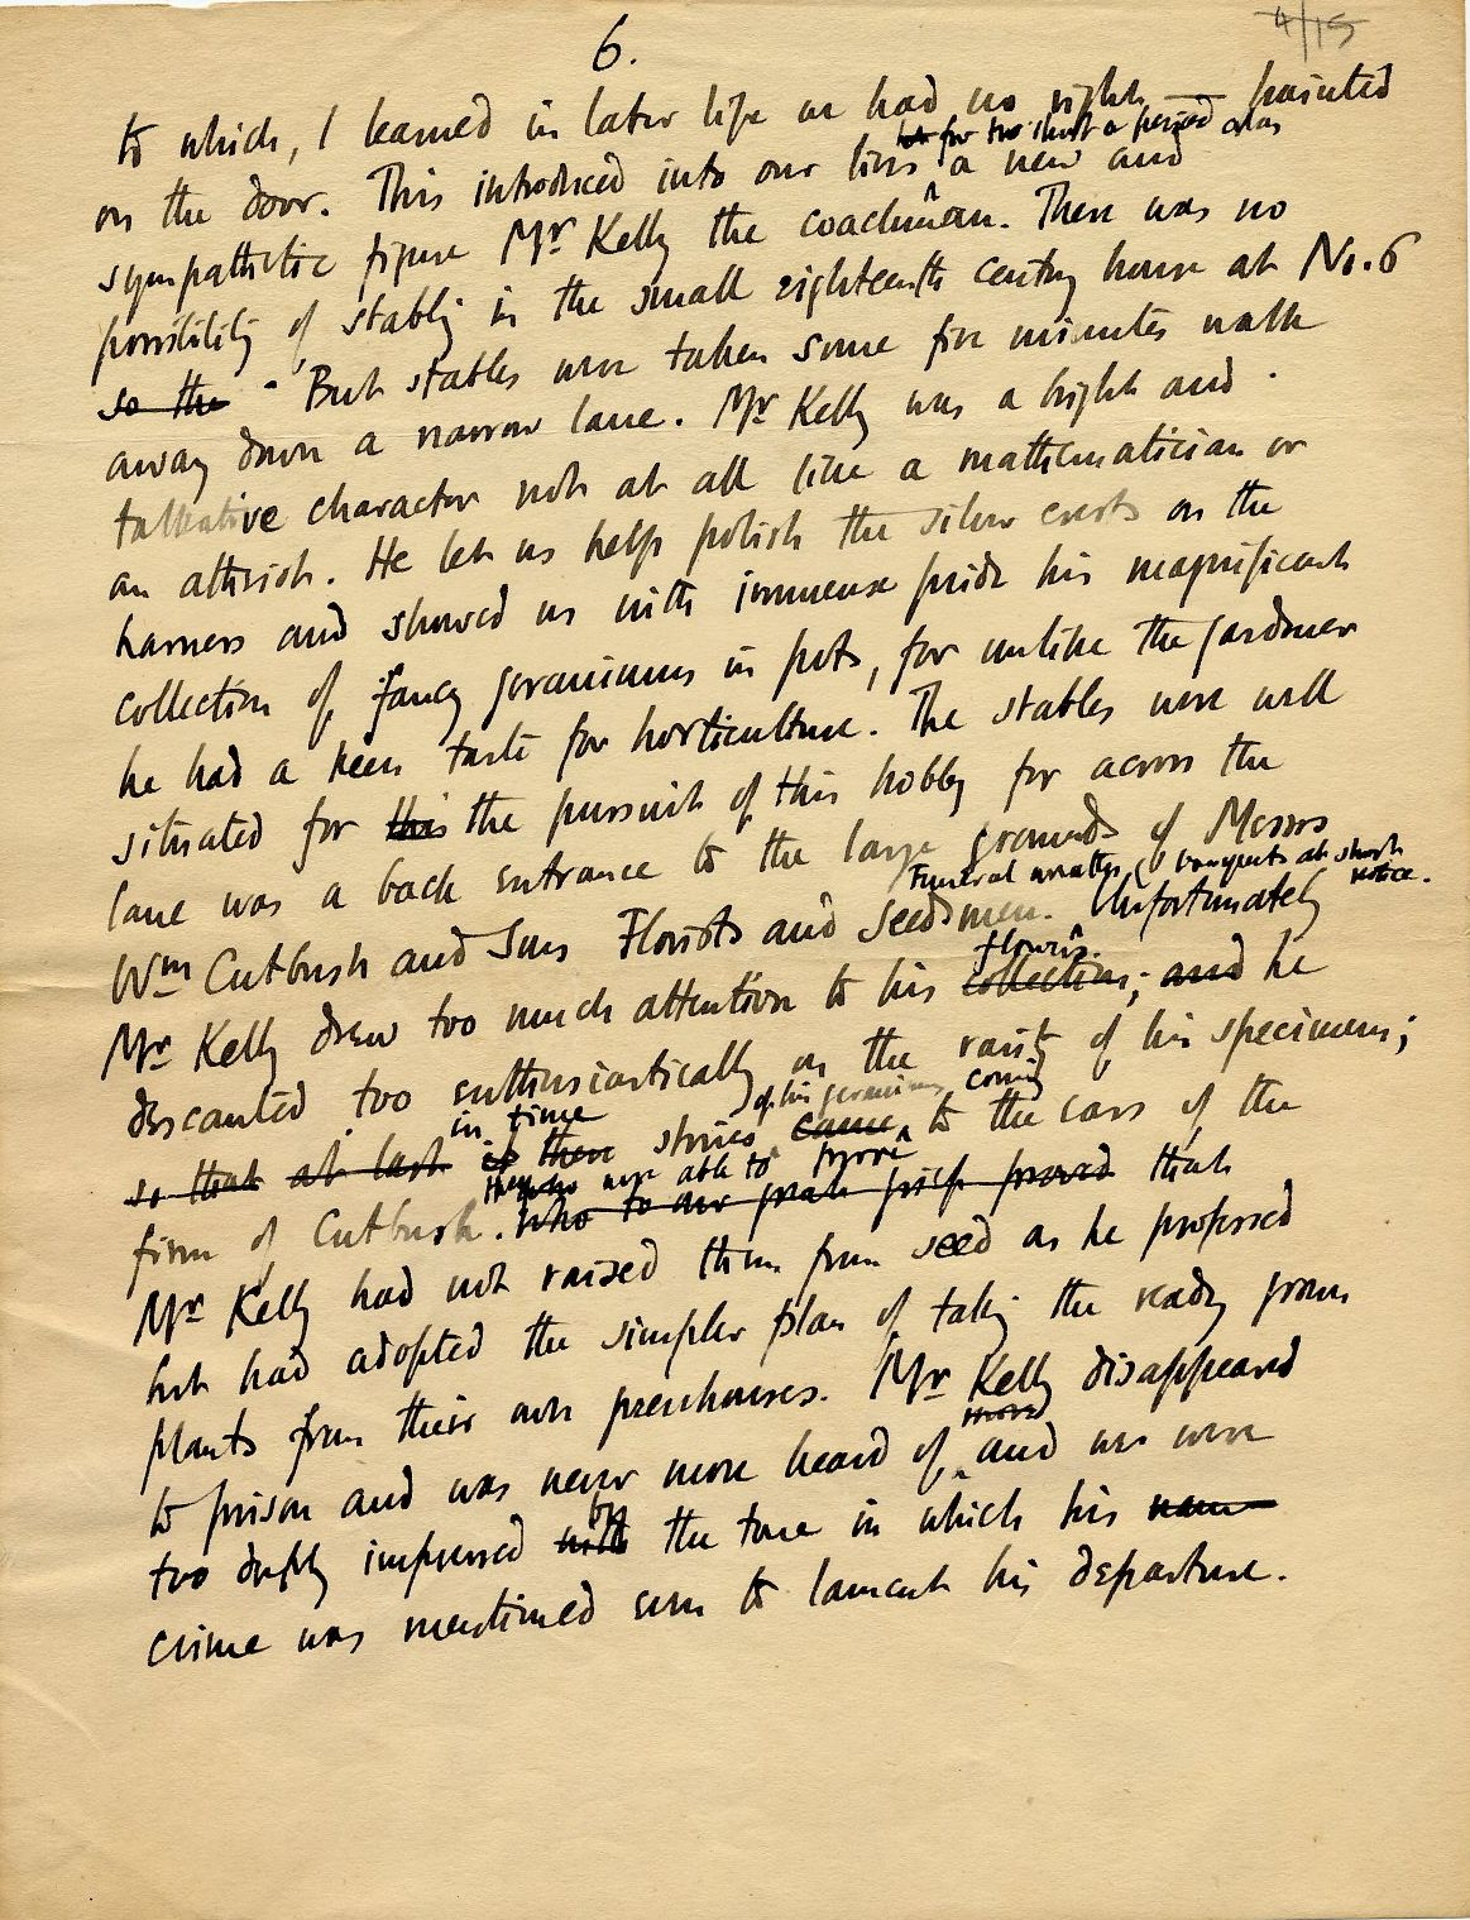 6.
4/15
to which, I learned in later life we had no right — painted
but for too short a period alas
on the door. This introduced into our lives a new and
sympathetic figure Mr Kelly the coachman. There was no
possibility of stablig in the small eighteenth century house at No. 6
so the - But stables were taken some five minutes walk
away down a narrow lane. Mr Kelly was a bright and
talkative character not at all like a mathematician or
an atheist. He let us help polish the silver crests on the
harness and showed us with immense pride his magnificent
collection of fancy geraniums in pots, for unlike the gardener
he had a keen taste for horticulture. The stables were well
situated for this the pursuit of this hobby for across the
lane was a back entrance to the large grounds of Messrs
Funeral wreaths & bouquets at short notice.
Wm Cutbush and Sons Florists and Seedsmen. Unfortunately
flowers.
Mr Kelly drew too much attention to his collection; and he
descanted too enthusiastically on the rarity of his specimens;
in time of his geraniums coming
so that at last if there stories came to the ears of the
they who were able to prove
firm of Cutbush. Who to our great grief proved that
Mr Kelly had not raised them from seed as he professed
but had adopted the simpler plan of takig the ready grown
plants from their own greenhouses. Mr Kelly disappeared
more
to prison and was never more heard of and we were
by
too deeply impressed with the tone in which his name
crime was mentioned even to lament his departure.